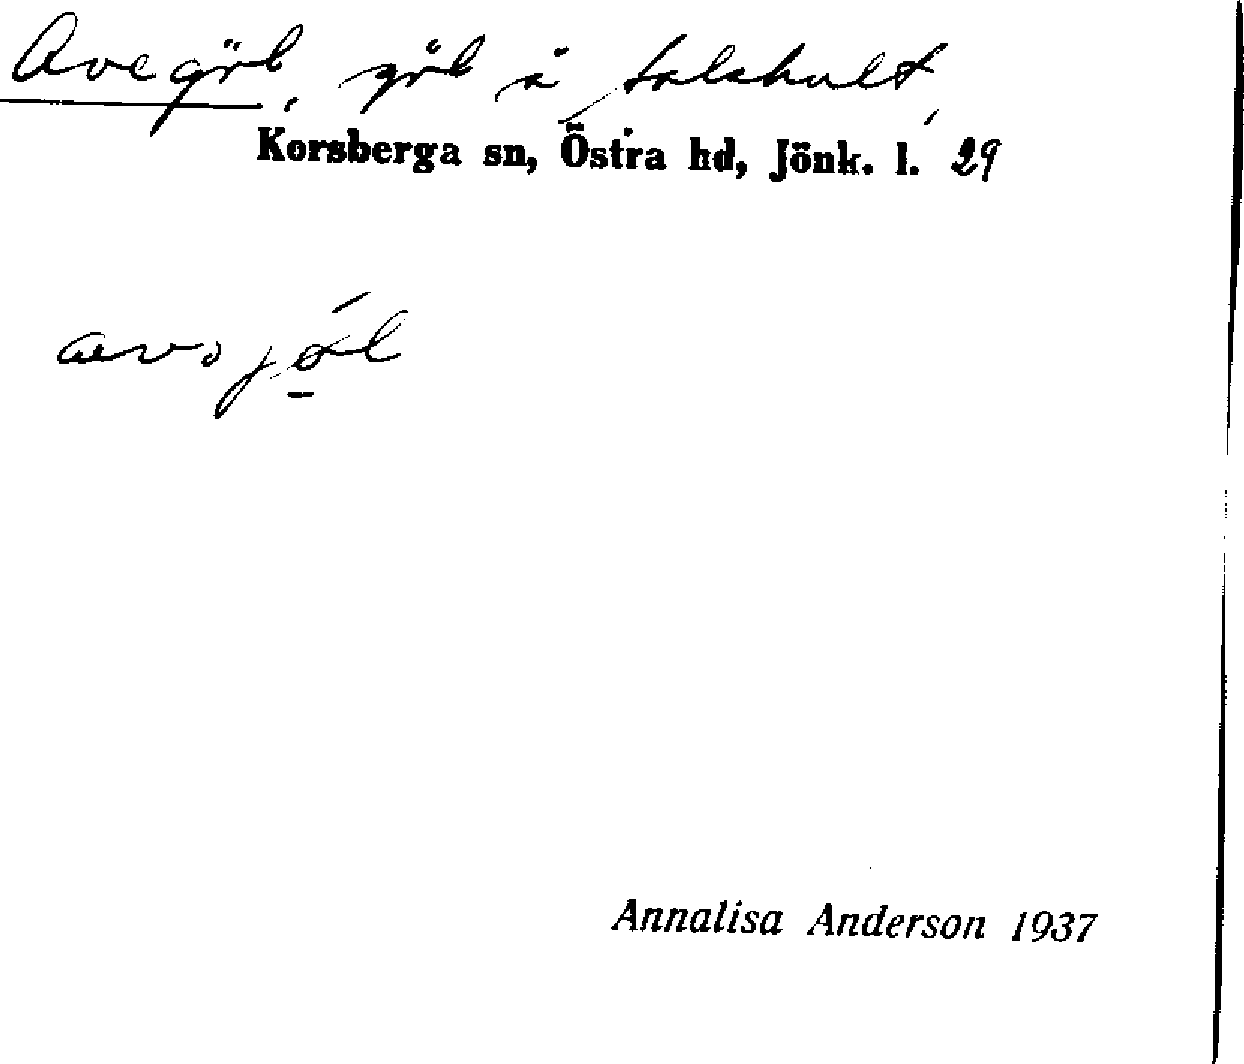 Avegöl, göl å Salshult,
Korsberga sn, Östra hd, Jönk. l. 29
avojöl
Annalisa Anderson 1937